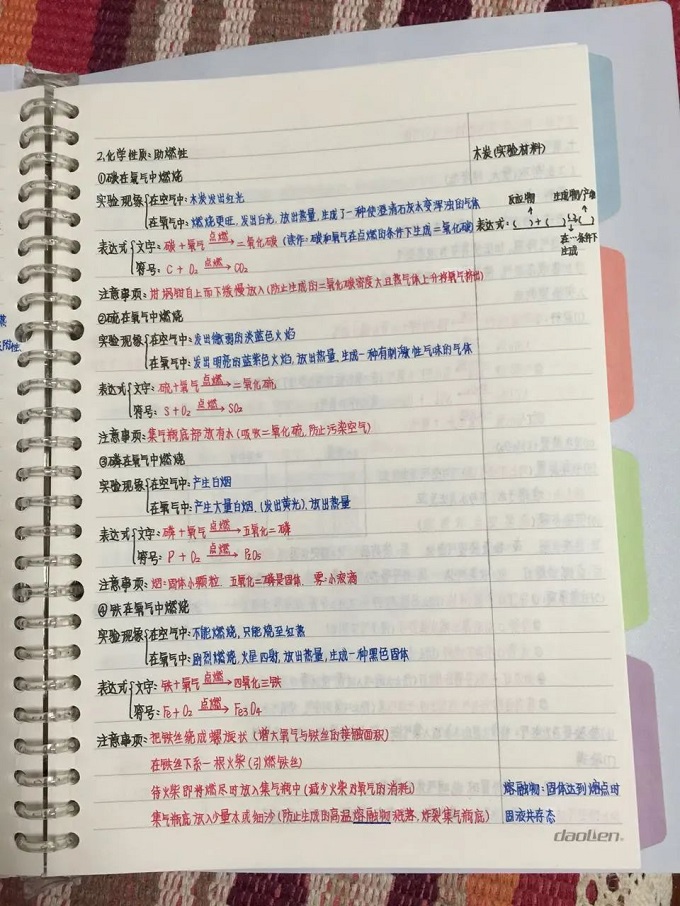 2.化学性质:助燃性
木炭(实验材料)
①碳在氧气中燃烧
实验现象 在空气中:木炭发出红光
在氧气中:燃烧更旺,发出白光,放出热量,生成了一种使澄清石灰水变浑浊的气体
反应物 生成物/产物
表达式:( )+( )→( )
在…条件下
生成
表达式 文字:碳+氧气 点燃→ 二氧化碳 (读作:碳和氧气在点燃的条件下生成二氧化碳)
符号: C + O₂ 点燃→ CO₂
注意事项:坩埚钳自上而下缓慢放入(防止生成的二氧化碳密度大且热气体上升将氧气挤出)
②硫在氧气中燃烧
实验现象 在空气中:发出微弱的淡蓝色火焰
在氧气中:发出明亮的蓝紫色火焰,放出热量,生成一种有刺激性气味的气体
表达式 文字:硫+氧气 点燃→ 二氧化硫
符号: S + O₂ 点燃→ SO₂
注意事项:集气瓶底部放有水(吸收二氧化硫,防止污染空气)
③磷在氧气中燃烧
实验现象 在空气中:产生白烟
在氧气中:产生大量白烟,(发出黄光),放出热量
表达式 文字:磷+氧气 点燃→ 五氧化二磷
符号: P + O₂ 点燃→ P₂O₅
注意事项:烟:固体小颗粒 五氧化二磷是固体 雾:小液滴
④铁在氧气中燃烧
实验现象 在空气中:不能燃烧,只能烧至红热
在氧气中:剧烈燃烧,火星四射,放出热量,生成一种黑色固体
表达式 文字:铁+氧气 点燃→ 四氧化三铁
符号: Fe + O₂ 点燃→ Fe₃O₄
注意事项:把铁丝绕成螺旋状(增大氧气与铁丝的接触面积)
在铁丝下系一根火柴(引燃铁丝)
待火柴即将燃尽时放入集气瓶中(减少火柴对氧气的消耗)
集气瓶底放入少量水或细沙(防止生成的高温熔融物溅落,炸裂集气瓶底)
熔融物:固体达到熔点时
固液共存态
daolien